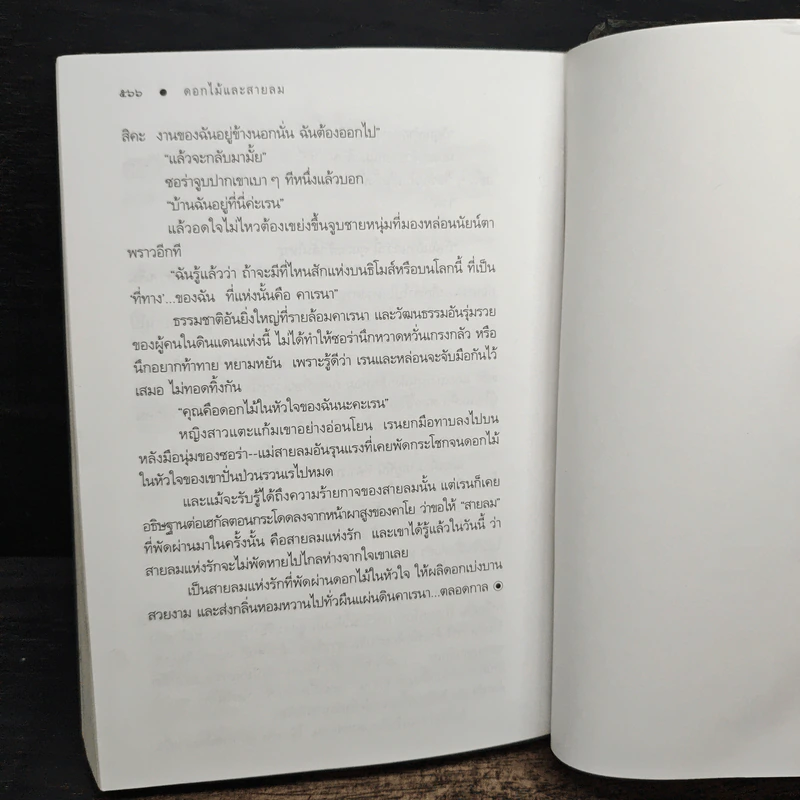 ๕๖๖ ● ดอกไม้และสายลม
สิคะ งานของฉันอยู่ข้างนอกนั่น ฉันต้องออกไป"
"แล้วจะกลับมามั้ย"
ซอร่าจูบปากเขาเบา ๆ ทีหนึ่งแล้วบอก
"บ้านฉันอยู่ที่นี่ค่ะเรน"
แล้วอดใจไม่ไหวต้องเขย่งขึ้นจูบชายหนุ่มที่มองหล่อนนัยน์ตา
พราวอีกที
"ฉันรู้แล้วว่า ถ้าจะมีที่ไหนสักแห่งบนธิโมส์หรือบนโลกนี้ ที่เป็น
'ที่ทาง'...ของฉัน ที่แห่งนั้นคือ คาเรนา"
ธรรมชาติอันยิ่งใหญ่ที่รายล้อมคาเรนา และวัฒนธรรมอันรุ่มรวย
ของผู้คนในดินแดนแห่งนี้ ไม่ได้ทำให้ซอร่านึกหวาดหวั่นเกรงกลัว หรือ
นึกอยากท้าทาย หยามหยัน เพราะรู้ดีว่า เรนและหล่อนจะจับมือกันไว้
เสมอ ไม่ทอดทิ้งกัน
"คุณคือดอกไม้ในหัวใจของฉันนะคะเรน"
หญิงสาวแตะแก้มเขาอย่างอ่อนโยน เรนยกมือทาบลงไปบน
หลังมือนุ่มของซอร่า--แม่สายลมอันรุนแรงที่เคยพัดกระโชกจนดอกไม้
ในหัวใจของเขาปั่นป่วนรวนเรไปหมด
และแม้จะรับรู้ได้ถึงความร้ายกาจของสายลมนั้น แต่เรนก็เคย
อธิษฐานต่อเฮกัลตอนกระโดดลงจากหน้าผาสูงของคาโย ว่าขอให้ "สายลม"
ที่พัดผ่านมาในครั้งนั้น คือสายลมแห่งรัก และเขาได้รู้แล้วในวันนี้ ว่า
สายลมแห่งรักจะไม่พัดหายไปไกลห่างจากใจเขาเลย
เป็นสายลมแห่งรักที่พัดผ่านดอกไม้ในหัวใจ ให้ผลิดอกเบ่งบาน
สวยงาม และส่งกลิ่นหอมหวานไปทั่วผืนแผ่นดินคาเรนา...ตลอดกาล ◉